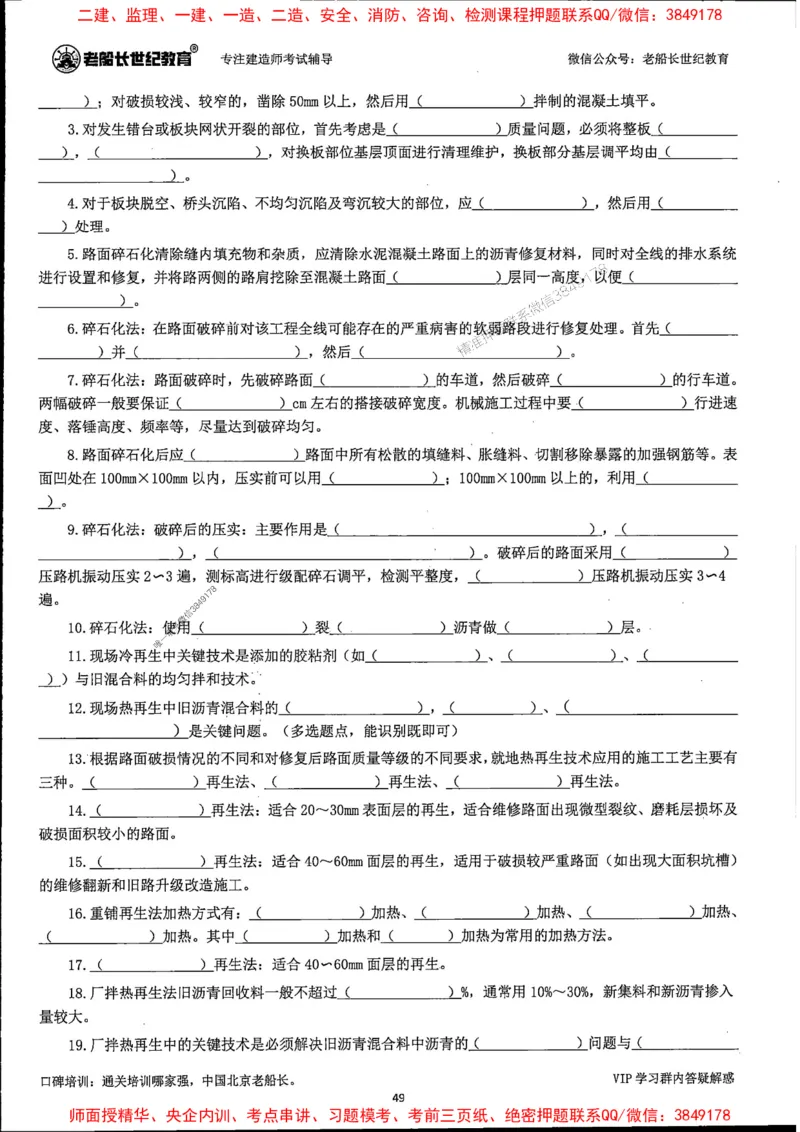 二建、监理、一建、一造、二造、安全、消防、咨询、检测课程押题联系QQ/微信：3849178
老船长世纪教育® 专注建造师考试辅导 微信公众号：老船长世纪教育
）；对破损较浅、较窄的，凿除 50mm 以上，然后用（ ）拌制的混凝土填平。
3.对发生错台或板块网状开裂的部位，首先考虑是（ ）质量问题，必须将整板（
），（ ），对换板部位基层顶面进行清理维护，换板部分基层调平均由（
）。
4.对于板块脱空、桥头沉陷、不均匀沉陷及弯沉较大的部位，应（ ），然后用（
）处理。
5.路面碎石化清除缝内填充物和杂质，应清除水泥混凝土路面上的沥青修复材料，同时对全线的排水系统
进行设置和修复，并将路两侧的路肩挖除至混凝土路面（ ）层同一高度，以便（
）。
6.碎石化法：在路面破碎前对该工程全线可能存在的严重病害的软弱路段进行修复处理。首先（
）并（ ），然后（ ）。
7.碎石化法：路面破碎时，先破碎路面（ ）的车道，然后破碎（ ）的行车道。
两幅破碎一般要保证（ ）cm 左右的搭接破碎宽度。机械施工过程中要（ ）行进速
度、落锤高度、频率等，尽量达到破碎均匀。
8.路面碎石化后应（ ）路面中所有松散的填缝料、胀缝料、切割移除暴露的加强钢筋等。表
面凹处在 100mm×100mm 以内，压实前可以用（ ）；100mm×100mm 以上的，利用（
）。
9.碎石化法：破碎后的压实：主要作用是（ ），（
），（ ）。破碎后的路面采用（ ）
压路机振动压实 2~3 遍，测标高进行级配碎石调平，检测平整度，（ ）压路机振动压实 3~4
遍。
10.碎石化法：使用（ ）裂（ ）沥青做（ ）层。
11.现场冷再生中关键技术是添加的胶粘剂（如（ ）、（ ）、（
））与旧混合料的均匀拌和技术。
12.现场热再生中旧沥青混合料的（ ），（ ）、（
）是关键问题。（多选题点，能识别既即可）
13.根据路面破损情况的不同和对修复后路面质量等级的不同要求，就地热再生技术应用的施工工艺主要有
三种。（ ）再生法、（ ）再生法、（ ）再生法。
14.（ ）再生法：适合 20～30mm 表面层的再生，适合维修路面出现微型裂纹、磨耗层损坏及
破损面积较小的路面。
15.（ ）再生法：适合 40～60mm 面层的再生，适用于破损较严重路面（如出现大面积坑槽）
的维修翻新和旧路升级改造施工。
16.重铺再生法加热方式有：（ ）加热、（ ）加热、（ ）加热、
（ ）加热。其中（ ）加热和（ ）加热为常用的加热方法。
17.（ ）再生法：适合 40~60mm 面层的再生。
18.厂拌热再生法旧沥青回收料一般不超过（ ）%，通常用 10%～30%，新集料和新沥青掺入
量较大。
19.厂拌热再生中的关键技术是必须解决旧沥青混合料中沥青的（ ）问题与（
口碑培训：通关培训哪家强，中国北京老船长。 VIP 学习群内答疑解惑
49
师面授精华、央企内训、考点串讲、习题模考、考前三页纸、绝密押题联系QQ/微信：3849178